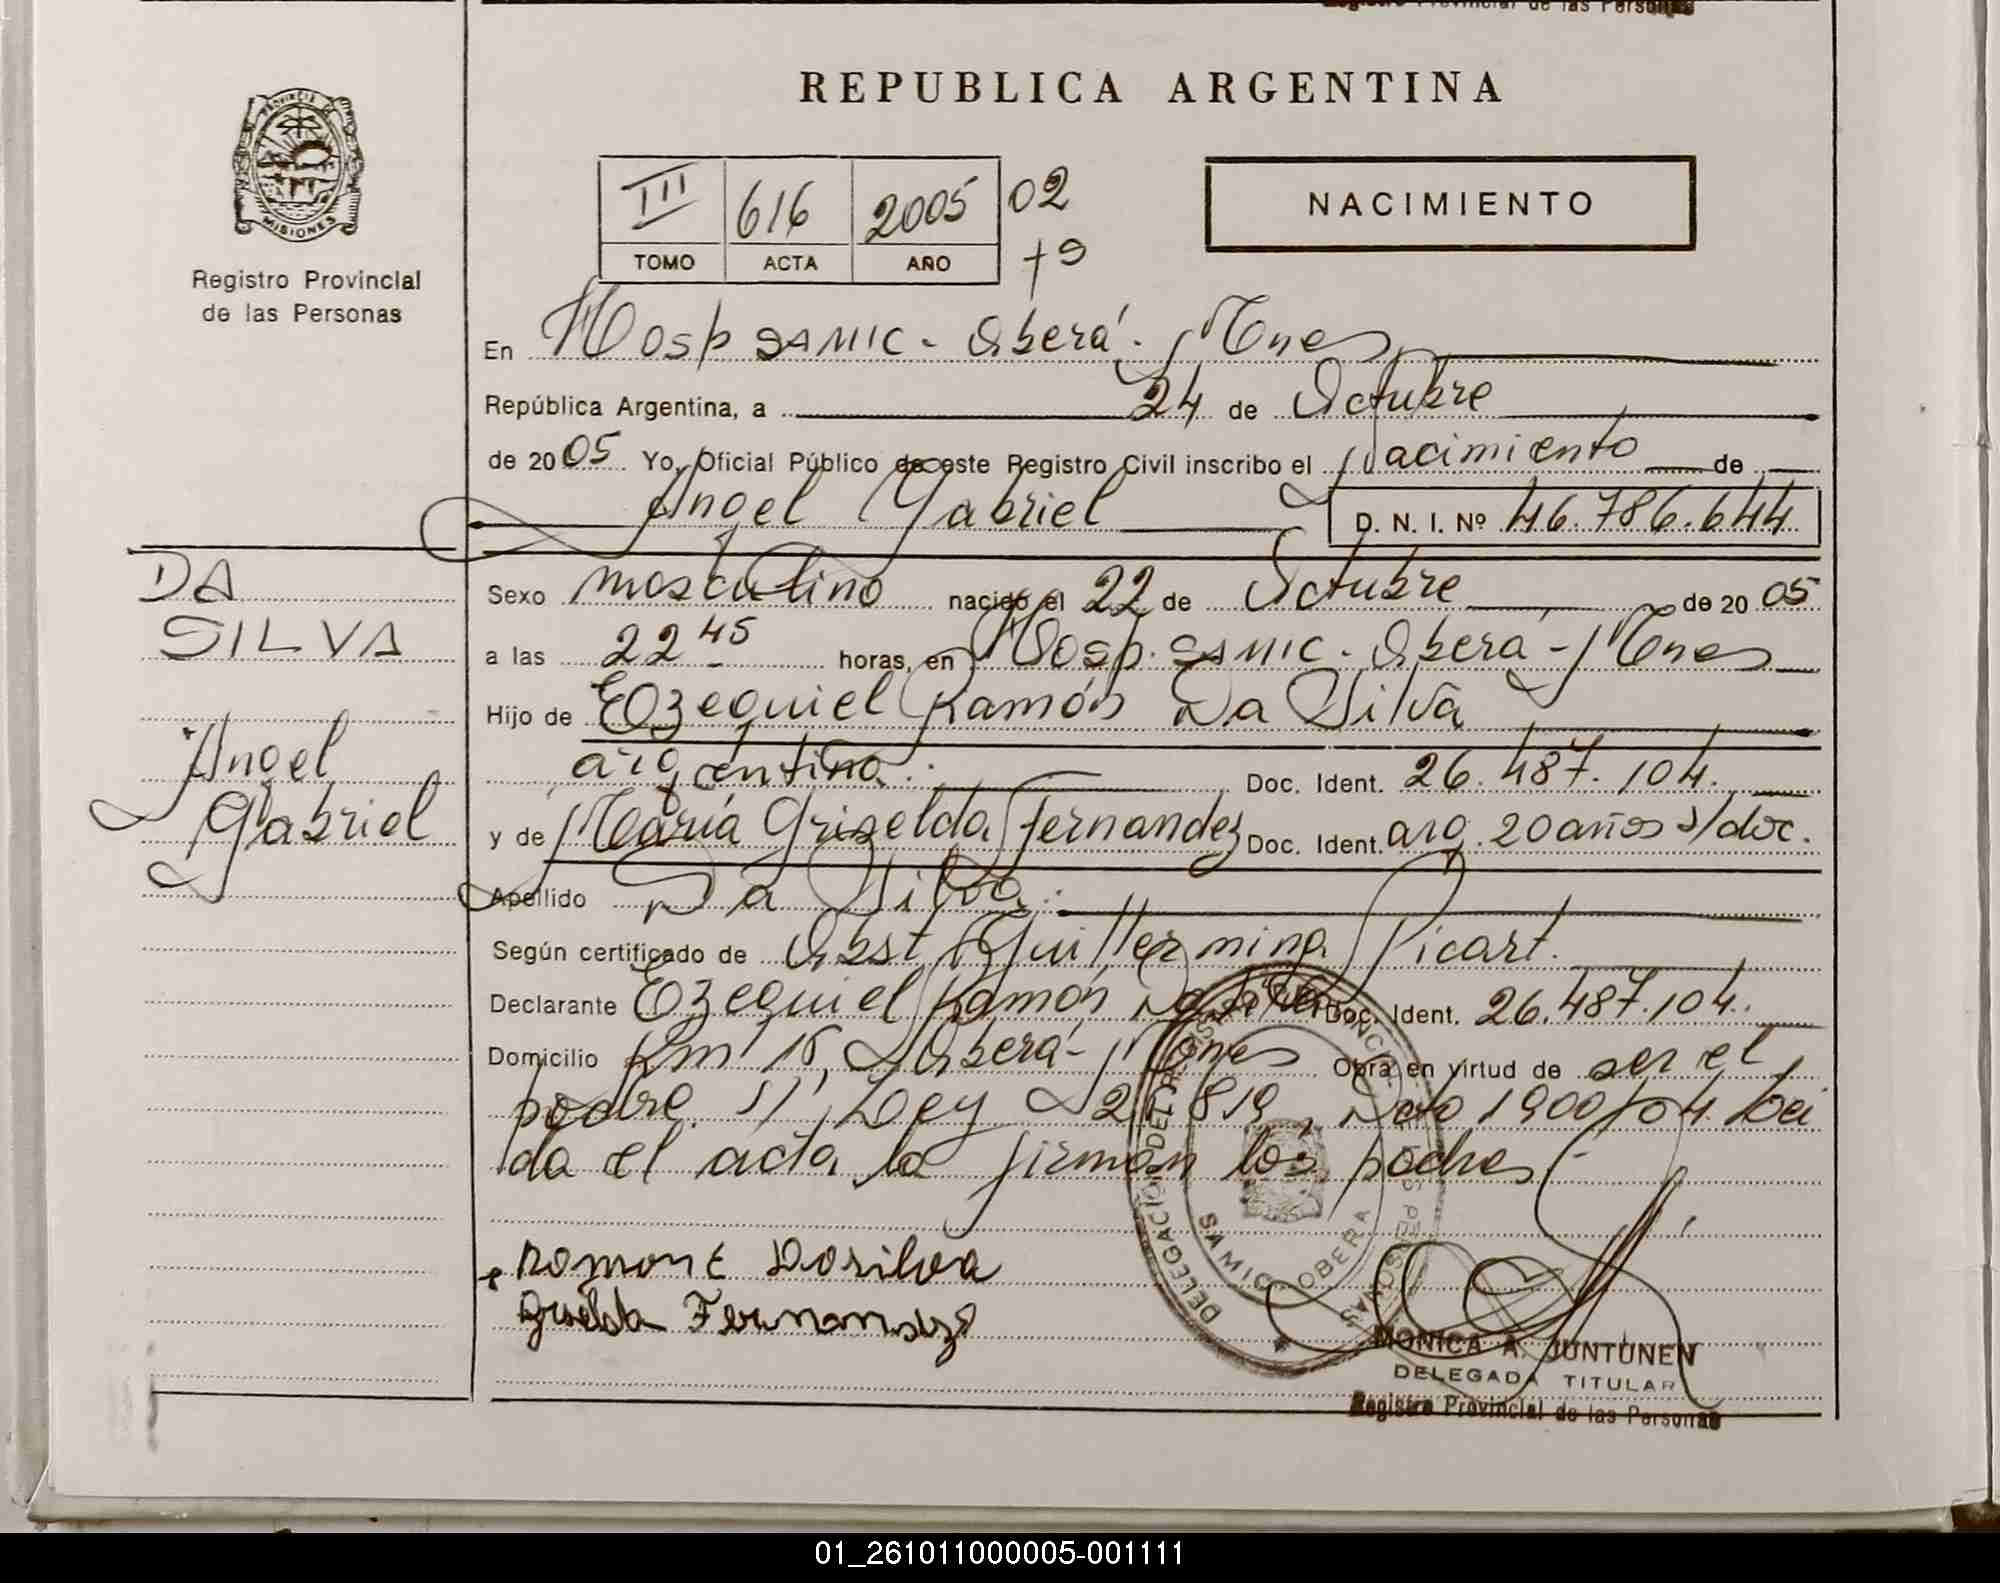 Registro Provincial de las Personas
REPUBLICA ARGENTINA
PROVINCIA DE
MISIONES
Registro Provincial
de las Personas
III 616 2005 02
TOMO ACTA AÑO 79
NACIMIENTO
En Hosp SAMIC - Oberá - Mnes
República Argentina, a 24 de Octubre
de 2005 Yo, Oficial Público de este Registro Civil inscribo el Nacimiento de
Angel Gabriel D. N. I. Nº 46.786.644
DA
SILVA
Angel
Gabriel
Sexo masculino nacido el 22 de Octubre de 2005
a las 22 45 horas, en Hosp. SAMIC - Oberá - Mnes
Hijo de Ezequiel Ramón Da Silva
argentino. Doc. Ident. 26.487.104.
y de María Griselda Fernandez Doc. Ident. arg. 20 años s/doc.
Apellido Da Silva.
Según certificado de Obst Guillermina Picart.
Declarante Ezequiel Ramón Da Silva Doc. Ident. 26.487.104.
Domicilio Km 15, Oberá - Mnes Obra en virtud de ser el
padre. Ley 25.819, Dcto 1900/04. Leí
da el acta la firman los padres.
Ramon E Dasilva
Griselda Fernandez
DELEGACION DEL REGISTRO PROVINCIAL DE LAS PERSONAS
SAMIC OBERA
MONICA A. JUNTUNEN
DELEGADA TITULAR
Registro Provincial de las Personas
01_261011000005-001111